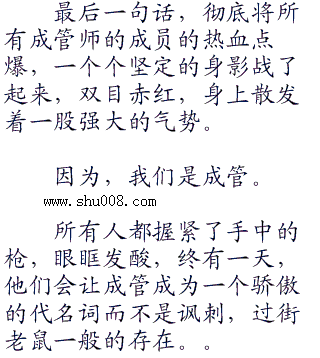 最后一句话，彻底将所
有成管师的成员的热血点
爆，一个个坚定的身影战了
起来，双目赤红，身上散发
着一股强大的气势。
因为，我们是成管。
www.shu008.com
所有人都握紧了手中的
枪，眼眶发酸，终有一天，
他们会让成管成为一个骄傲
的代名词而不是讽刺，过街
老鼠一般的存在。。